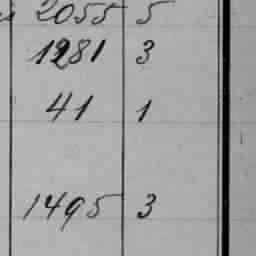 2055 5
1281 3
41 1
1495 3